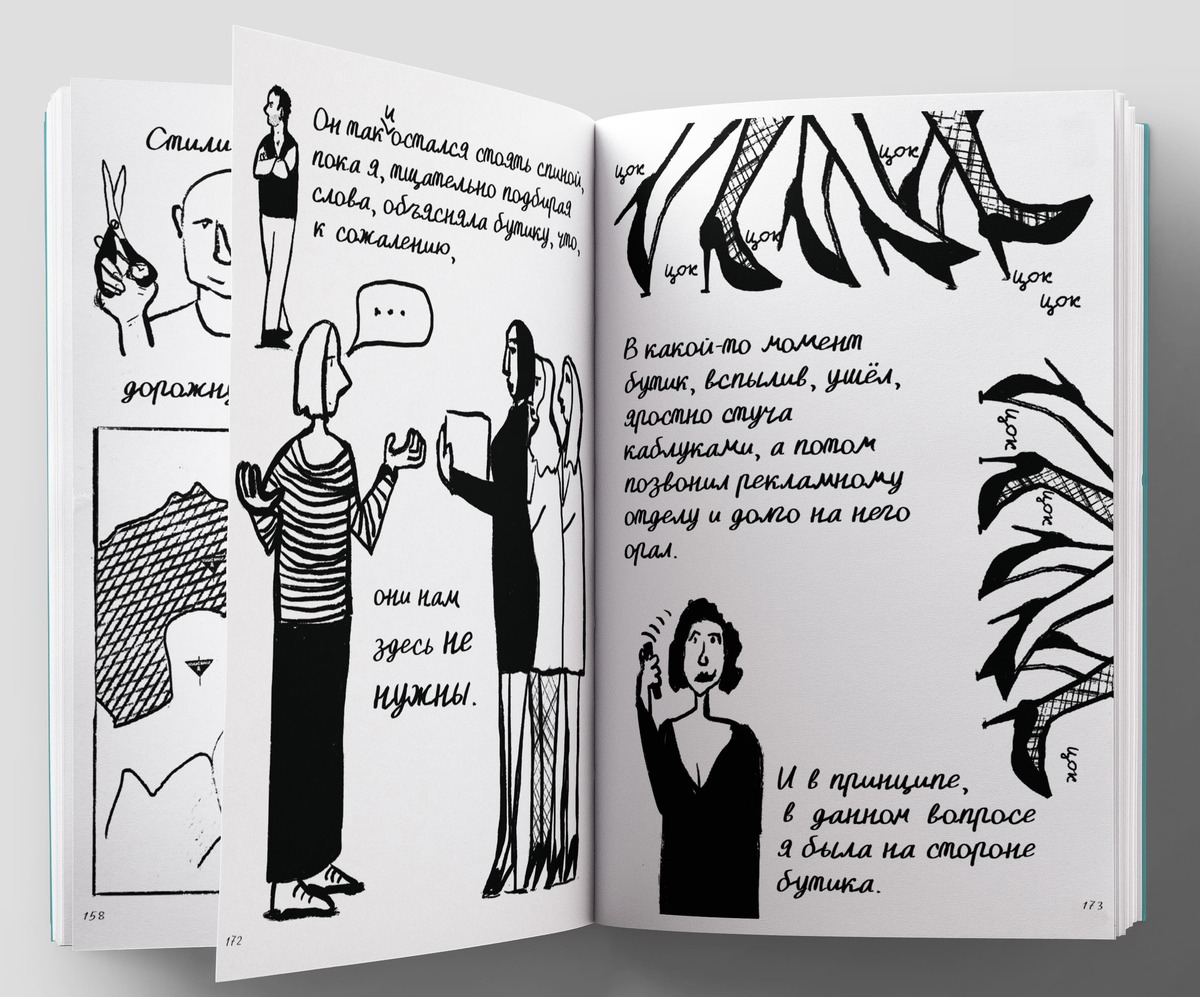 Стили
дорожн
158
Он так и остался стоять спиной,
пока я, тщательно подбирая
слова, объясняла бутику, что,
к сожалению,
...
они нам
здесь не
нужны.
172
цок
цок
цок
цок
цок
цок
В какой-то момент
бутик, вспылив, ушёл,
яростно стуча
каблуками, а потом
позвонил рекламному
отделу и долго на него
орал.
цок
цок
цок
И в принципе,
в данном вопросе
я была на стороне
бутика.
173